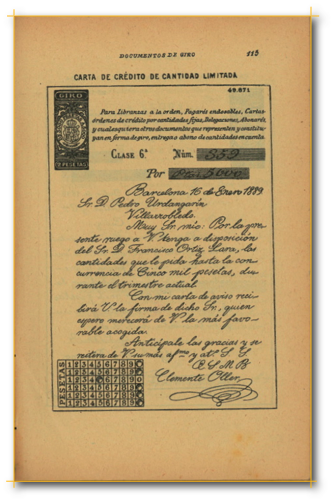 DOCUMENTOS DE GIRO 113
CARTA DE CRÉDITO DE CANTIDAD LIMITADA
49.871
GIRO
Para Libranzas a la orden, Pagarés endosables, Cartas
órdenes de crédito por cantidades fijas, Delegaciones, Abonarés,
y cualesquiera otros documentos que representen y constituy-
an en forma de giro, entregas o abono de cantidades en cuenta.
CLASE 6ª Núm. 359
10 PESETAS
Por Pts. 5000
Barcelona 16 de Enero 1889
Sr. D. Pedro Urdangarín
Villarrobledo
Muy Sr. mío: Por la pre-
sente ruego a V. tenga a disposición
del Sr. D. Francisco Ortiz Lara, las
cantidades que le pida hasta la con-
currencia de Cinco mil pesetas, du-
rante el trimestre actual.
Con mi carta de aviso reci-
birá V. la firma de dicho Sr., quien
espero merecerá de V. la más favo-
rable acogida.
Anticípale las gracias y se
reitera de V. su más afmo. y at. S. S.
Q. S. M. B.
Clemente Oller
PESETAS
1 2 3 4 5 6 7 8 9